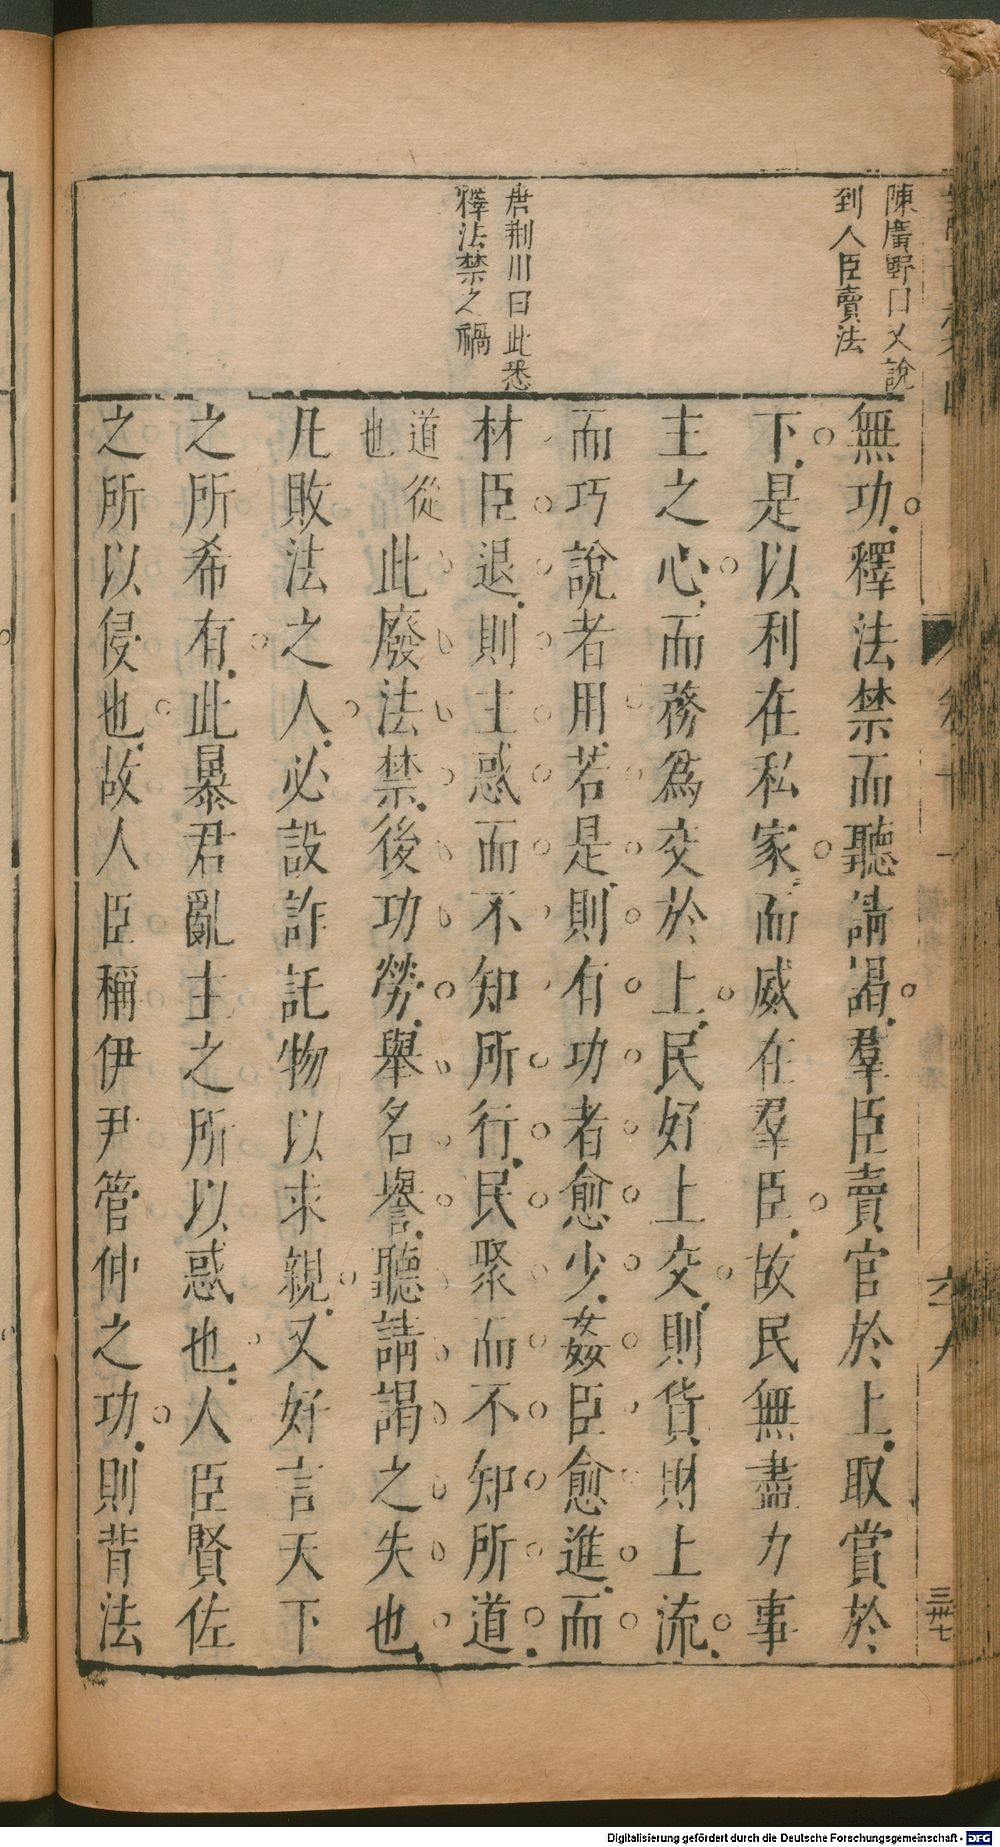 陳廣野曰又說
到人臣賣法
唐荆川曰此悉
釋法禁之禍
無功釋法禁而聽請謁羣臣賣官於上取賞於
下是以利在私家而威在羣臣故民無盡力事
主之心而務爲交於上民好上交則貨財上流
而巧說者用若是則有功者愈少姦臣愈進而
材臣退則主惑而不知所行民聚而不知所道
道從
也
此廢法禁後功勞舉名譽聽請謁之失也
凡敗法之人必設詐託物以求親又好言天下
之所希有此暴君亂主之所以惑也人臣賢佐
之所以侵也故人臣稱伊尹管仲之功則背法
三卅七
Digitalisierung gefördert durch die Deutsche Forschungsgemeinschaft - DFG